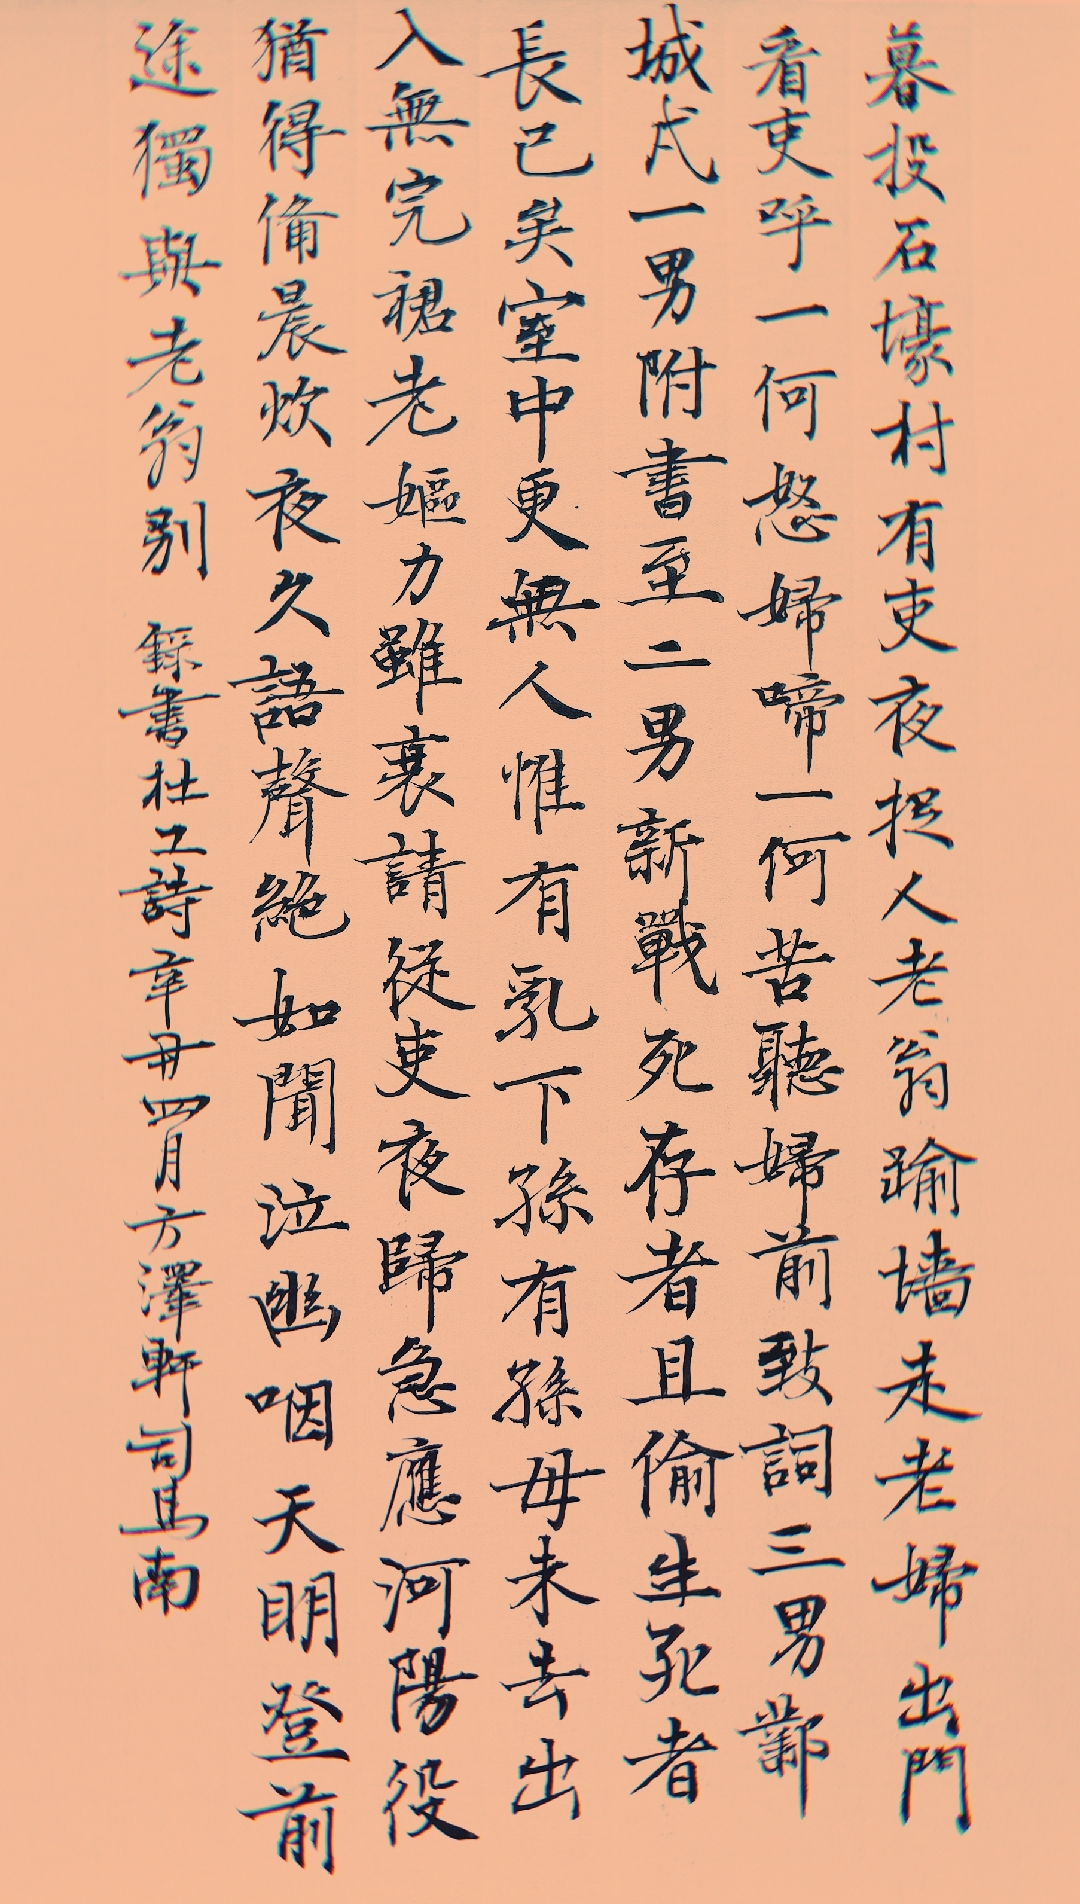 暮投石壕村有吏夜捉人老翁踰墙走老婦出門
看吏呼一何怒婦啼一何苦聽婦前致詞三男鄴
城戍一男附書至二男新戰死存者且偷生死者
長已矣室中更無人惟有乳下孫有孫母未去出
入無完裙老嫗力雖衰請從吏夜歸急應河陽役
猶得備晨炊夜久語聲絶如聞泣幽咽天明登前
途獨與老翁別 錄書杜工詩辛丑四月方澤軒司馬南